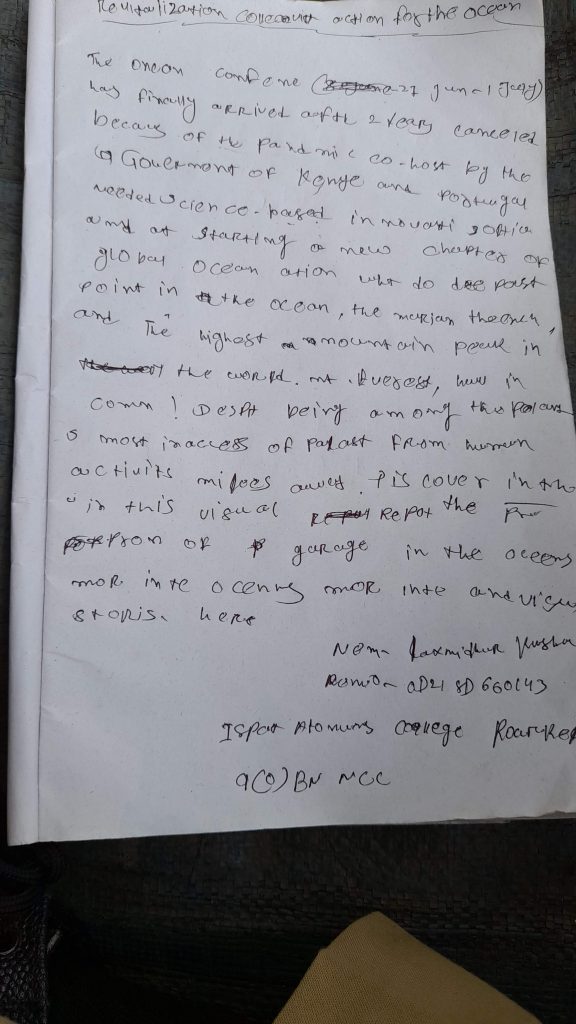 Revitalization action for the ocean
The (27 Jun - 1 July)
has finally arrived afth 2 years canceled
becaus of the pandmic co-host by the
Government of Kenye and Portugal
needed science-based innovati
aimd at starting a new chapter of
global ocean ation what do dee past
point in the ocean, the marian
and The highest mountain peak in
the world. mt. Everest, have in
comm! Despt being among
most inaccess of from human
activits miloes away. Discover in the
in this visual Repot the
prom of garage in the oceens
mor inte ocenns mor inte and
storis. here
Nem-
Regno- OD21 SD 660143
Ispat Atonums College Rourke
9(O) BN NCC